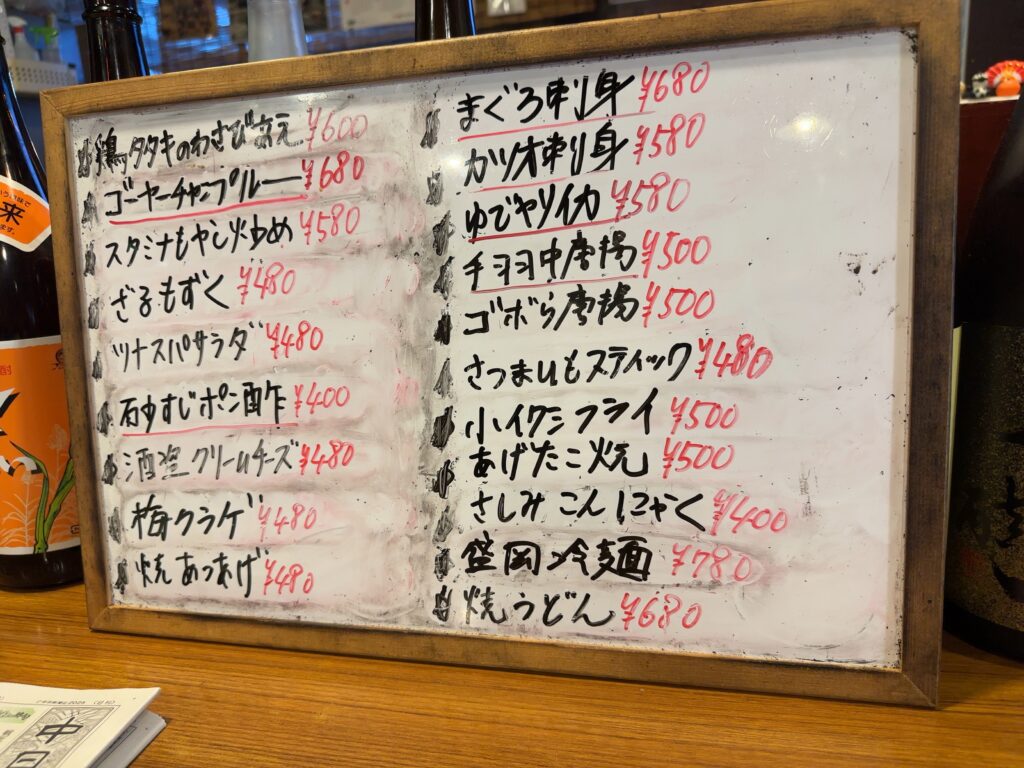 鶏タタキのわさび和え ¥600
ゴーヤーチャンプルー ¥680
スタミナもやし炒め ¥580
ざるもずく ¥480
ツナスパサラダ ¥480
牛すじポン酢 ¥400
酒盗クリームチーズ ¥480
梅クラゲ ¥480
焼あつあげ ¥480
まぐろ刺身 ¥680
カツオ刺身 ¥580
ゆでヤリイカ ¥580
チョコ中唐揚 ¥500
ゴボう唐揚 ¥500
さつまいもスティック ¥480
小イワシフライ ¥500
あげたこ焼 ¥500
さしみこんにゃく ¥400
盛岡冷麺 ¥780
焼うどん ¥680
来
中日